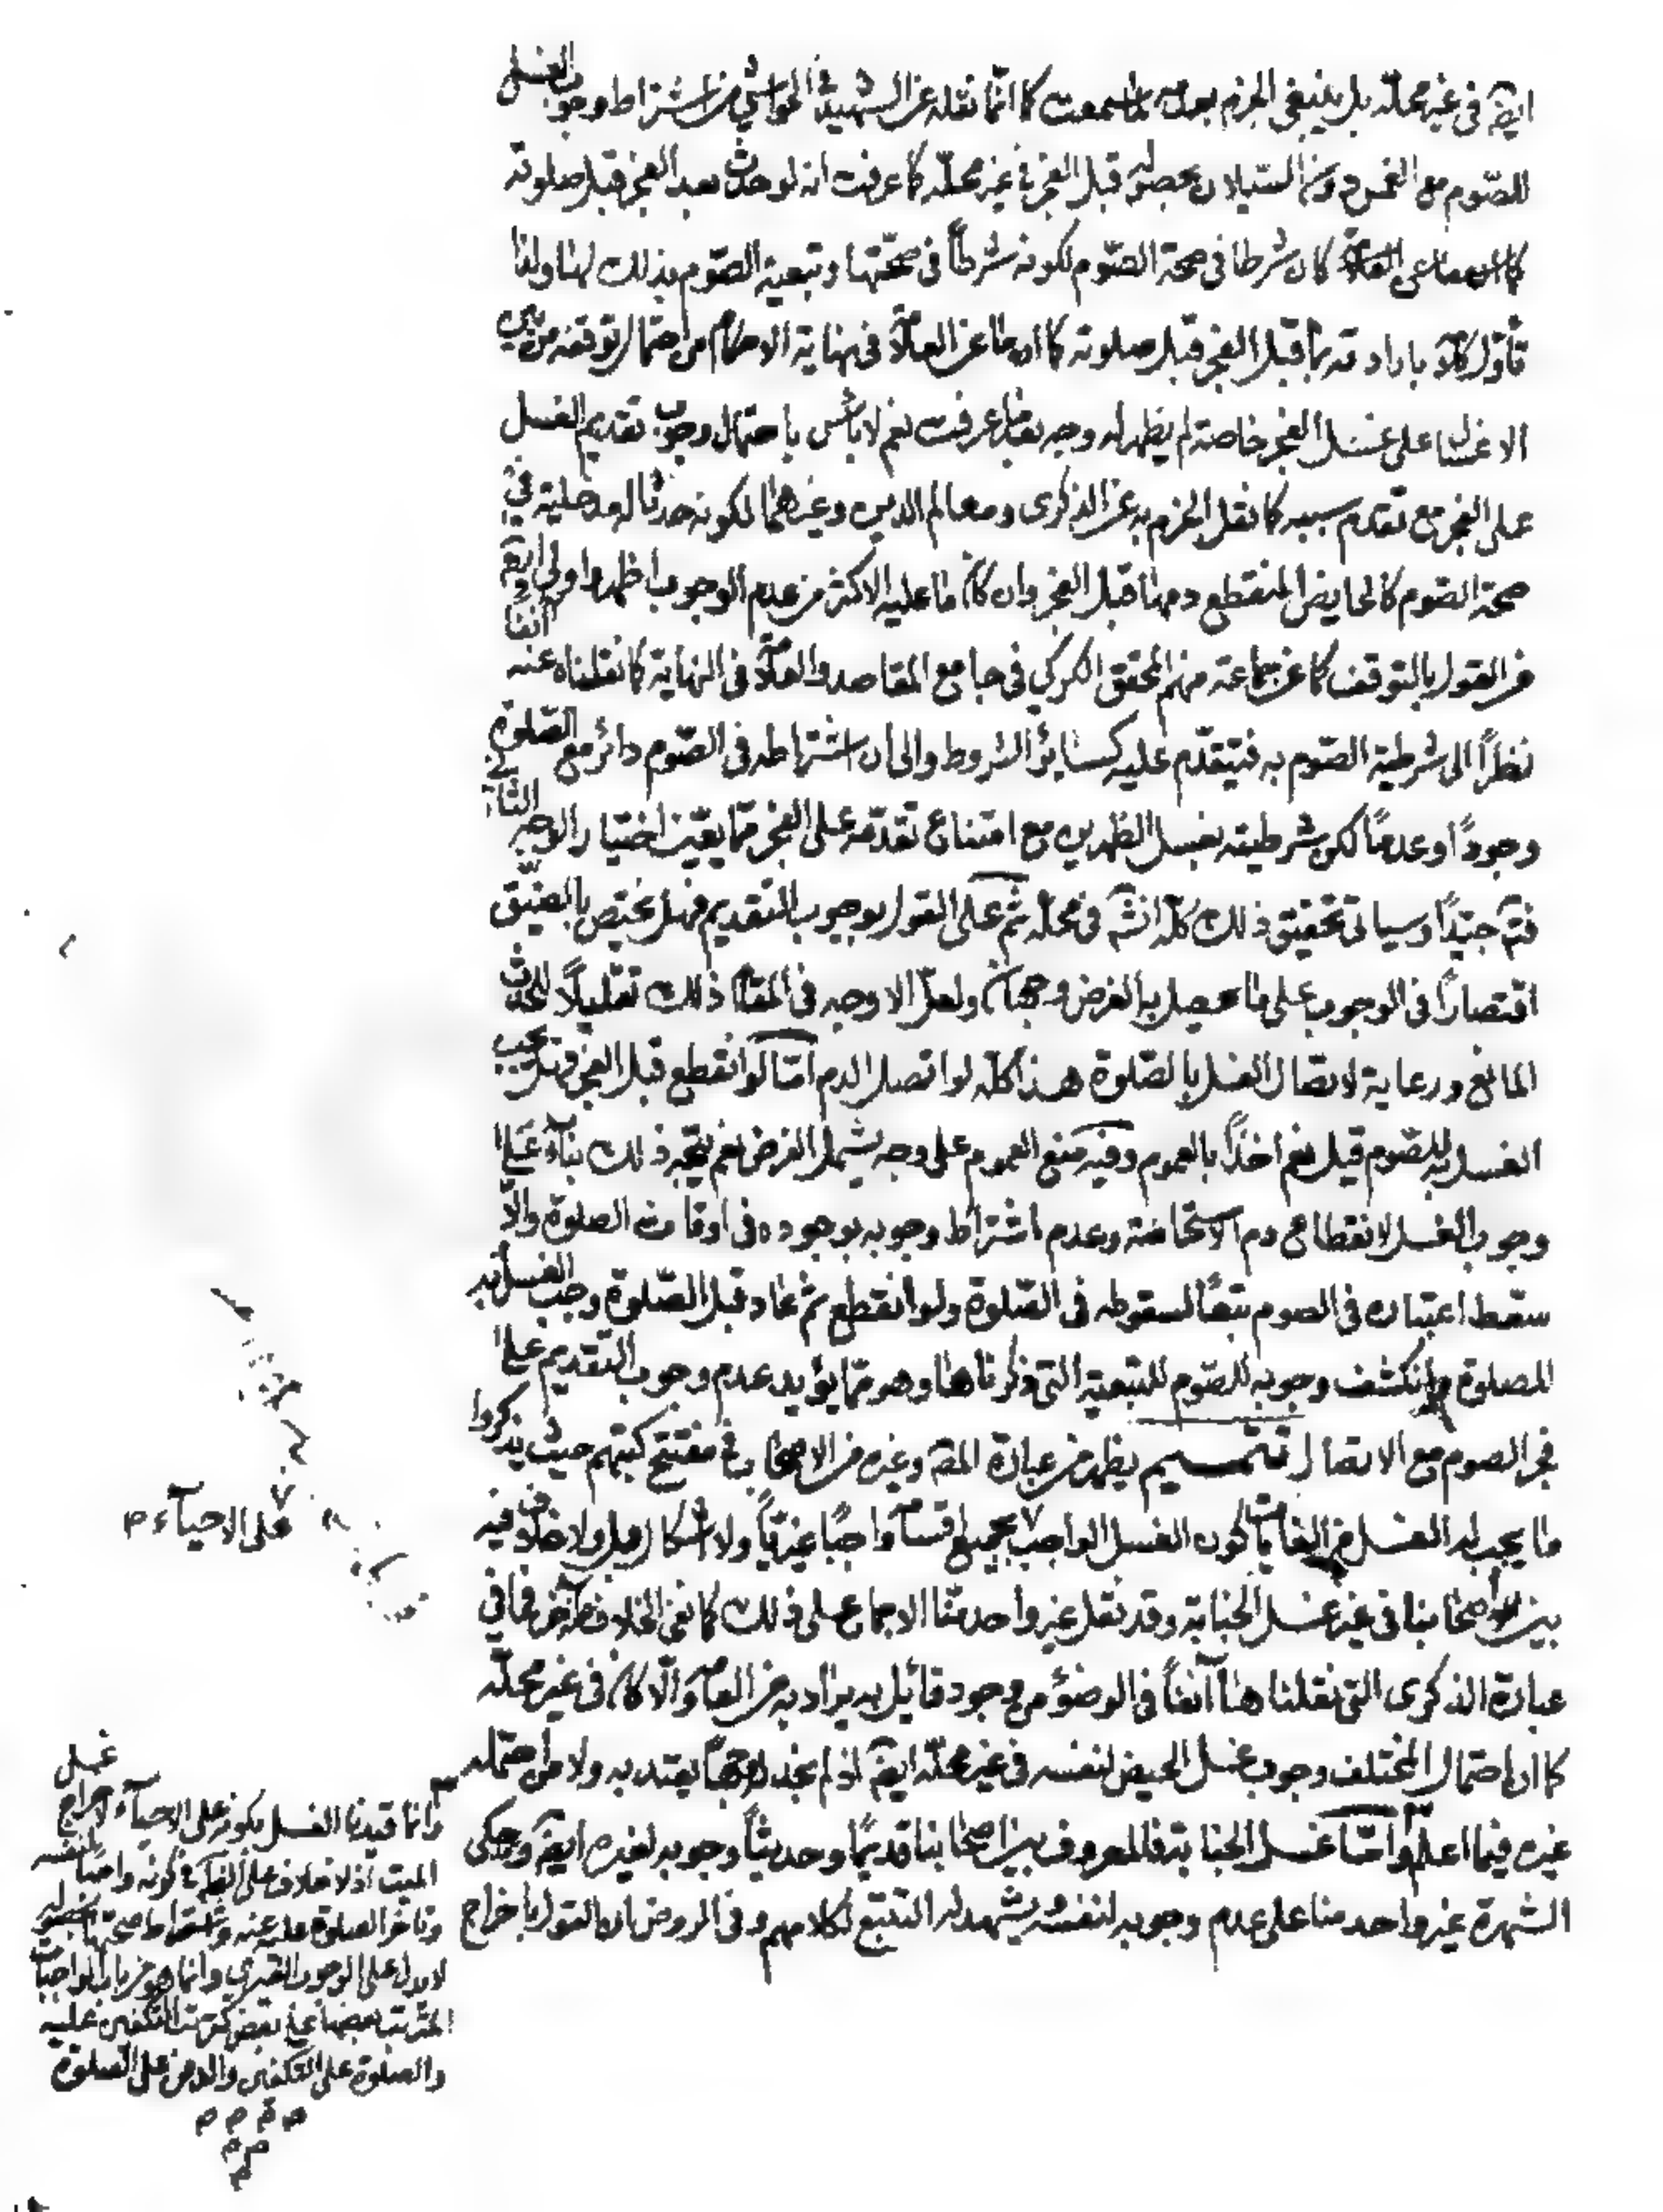 ايضً في غير محله بل ينبغي الجزم بعدمه لما سمعت كا انما نقله عن الشهيد في الحواشي من اشتراط وجوب الغسل
للصّوم مع الغمس دون السّيلان بحصوله قبل الفجر في غير محلّه كما عرفت انه لو حدث بعد الفجر قبل صلوته
كان شرطا في صحة الصّوم لكونه شرطاً في صحّتها وتبعية الصّوم بذلك لها ولنا
باراد ته بما قبل الفجر قبل صلوته كما ان ما عن العلّامة في نهاية الاحكام من احتمال توقفه من بين
الاغسال على غسل الفجر خاصة لم يظهر له وجه بعد ما عرفت نعم لا باس باحتمال وجوب تقديم الغسل
على الفجر مع تقدم سببه كما نقل الجزم به عن الذكرى ومعالم الدين وغيرهما لكونه حدثا له مدخلية في
صحة الصّوم كالحايض المنقطع دمها قبل الفجر وان كان ما عليه الاكثر من عدم الوجوب اظهر واولى ايضً
من القول بالتوقف كما عن جماعة منهم المحقق الكركي في جامع المقاصد والعلّامة في النهاية كما نقلناه عنه آنفاً
نظراً الى شرطية الصّوم به فيتقدّم عليه كسائر الشروط والى ان اشتراطه في الصّوم دائر مع الصّلوة
وجوداً وعدماً لكن شرطيته بغسل الظهرين مع امتناع تقدّمه على الفجر مما يعيّن اختيار الوجه الثاني
فتمّ جيّداً وسياتي تحقيق ذلك كلّه انشّ في محلّه ثم على القول بوجوب التقديم فهل يختص بالمضيّق
اقتصاراً في الوجوب على ما يحصل به الغرض وجهان ولعلّ الاوجه في المقام ذلك تقليلاً للحدث
المانع ورعاية لاتصال الغسل بالصّلوة هذا كلّه لو اتصل الدم امّا لو انقطع قبل الفجر فهل يجب
الغسل به للصّوم قيل نعم اخذاً بالعموم وفيه منع العموم على وجه يشمل الفرض نعم يتّجه ذلك بناءً على
وجوب الغسل لانقطاع دم الاستحاضة وعدم اشتراط وجوبه بوجوده في اوقات الصلوة والّا
سقط اعتباره في الصوم تبعاً لسقوطه في الصّلوة ولو انقطع ثم عاد قبل الصّلوة وجب الغسل به
للصلوة وانكشف وجوبه للصّوم للتبعية التي ذكرناها وهو ممّا يؤيد عدم وجوب التقديم على
فجر الصوم مع الاتصال تتميم يظهر من عبارة المصّ وغيره من الاصحاب في مفتتح كتبهم حيث يذكروا
ما يجب له الغسل من الغايات كون الغسل الواجب بجميع اقسامه واجبًا غيريّاً ولا اشكال بل ولا خلاف فيه
بين اصحابنا في غير غسل الجنابة وقد نقل غير واحد منّا الاجماع على ذلك كما نفى الخلاف آخر فما في
عبارة الذكرى التي نقلناها آنفاً في الوضوء من وجود قائل به يراد به من العامّة والّا كان في غير محلّه
كما ان احتمال المختلف وجوب غسل الحيض لنفسه في غير محلّه ايضً اذ لم نجد له وجهاً يعتد به ولا من احتمله
غيره فيما اعلم وامّا غسل الجنابة فالمعروف بين اصحابنا قديمًا وحديثاً وجوبه لغيره ايضً وحكى
الشهرة غير واحد منا على عدم وجوبه لنفسه يشهد له التتبع لكلامهم وفي الروض ان القول باخراج
على الاحياء م
وانما قيدنا الغسل بكونه على الاحياء لاخراج غسل
الميت اذ لا خلاف على الظّ في كونه واجباً لنفسه
وتاخر الصلوة عليه عنه واشتراط صحتها بحصوله
لا يدل على الوجوب الغيري وانما هو من باب الواجبات
المترتب بعضها على بعض كترتب التكفين عليه
والصلوة على التكفين والدفن على الصلوة
م م م م
م م
م